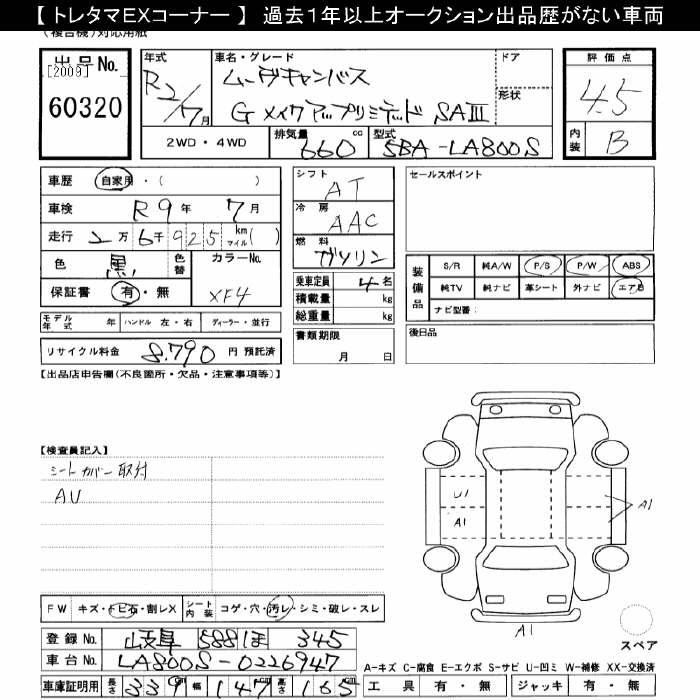 【 トレタマEXコーナー 】 過去1年以上オークション出品歴がない車両
(複合機)対応用紙
出品No.
[2009]
60320
年式
R2/7月
車名・グレード
ムーヴキャンバス
G メイクアップリミテッド SAⅢ
ドア
形状
2WD・4WD
排気量
660 cc
型式
5BA-LA800S
評価点
4.5
内装
B
車歴
自家用・( )
車検
R9年 7月
走行
2万6千925 km マイル( )
色
黒
色替
カラーNo.
XF4
保証書
有・無
モデル年式 年
ハンドル 左・右
ディーラー・並行
リサイクル料金 8,790 円 預託済
シフト
AT
冷房
AAC
燃料
ガソリン
乗車定員 4 名
積載量 kg
総重量 kg
書類期限
月 日
セールスポイント
装備品
S/R 純A/W P/S P/W ABS
純TV 純ナビ 革シート 外ナビ エアB
ナビ型番:
後日品
【出品店申告欄(不良箇所・欠品・注意事項等)】
【検査員記入】
シートカバー取付
AU
U1
A1
A1
A1
スペア
FW キズ・トビ石・割レX
シート内装 コゲ・穴・汚レ・シミ・破レ・スレ
登録No. 岐阜 588 ほ 345
車台No. LA800S-0226947
車庫証明用 長さ 339cm 幅 147cm 高さ 165cm
A-キズ C-腐食 E-エクボ S-サビ U-凹ミ W-補修 XX-交換済
工具 有・無
ジャッキ 有・無